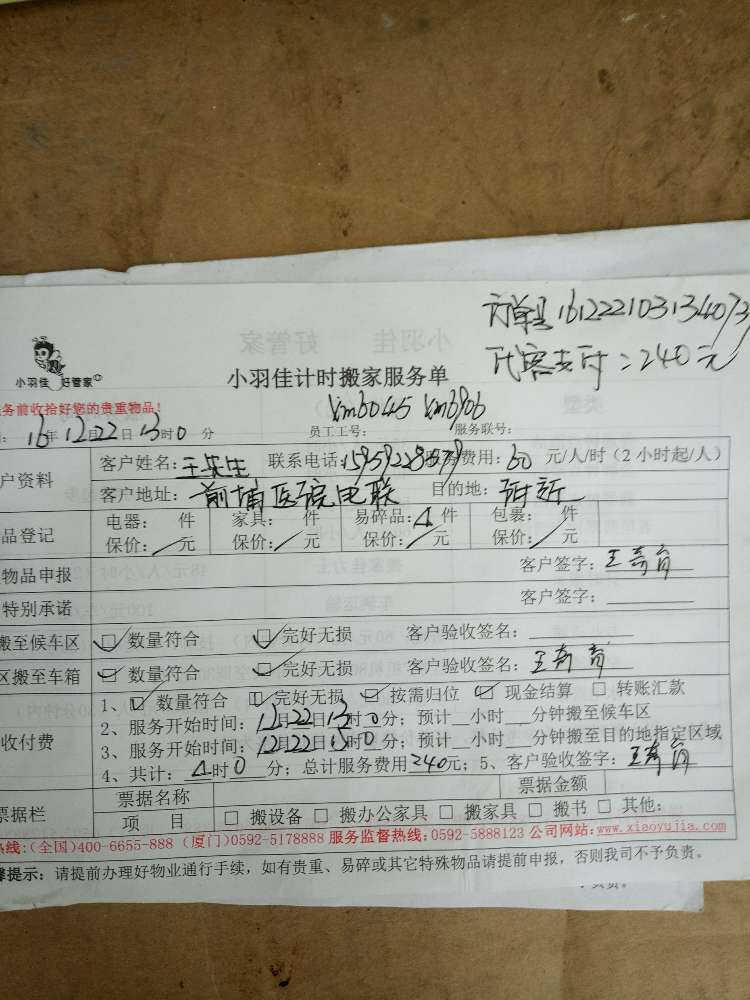 订单号161222103134073
代客支付:240元
小羽佳 好管家
小羽佳计时搬家服务单
务前收拾好您的贵重物品!
16年12月22日13时0分 员工工号: Xm6045 Xm6906 服务联号:
户资料 客户姓名:王先生 联系电话:15959228979 服务费用:60元/人/时(2小时起/人)
客户地址:前埔医院电联 目的地:附近
品登记 电器: 件 家具: 件 易碎品: 件 包裹: 件
保价: 元 保价: 元 保价: 元 保价: 元
物品申报 客户签字:
特别承诺 客户签字:
搬至候车区 ☑ 数量符合 ☑ 完好无损 客户验收签名:
区搬至车箱 ☑ 数量符合 ☑ 完好无损 客户验收签名:
收付费 1、☑ 数量符合 ☑ 完好无损 ☑ 按需归位 ☑ 现金结算 □ 转账汇款
2、服务开始时间:12月22日13时0分;预计 小时 分钟搬至候车区
3、服务开始时间:12月22日15时0分;预计 小时 分钟搬至目的地指定区域
4、共计: 时0分;总计服务费用240元;5、客户验收签字:
票据栏 票据名称 票据金额
项 目 □ 搬设备 □ 搬办公家具 □ 搬家具 □ 搬书 □ 其他:
热线:(全国)400-6655-888 (厦门)0592-5178888 服务监督热线:0592-5888123 公司网站:www.xiaoyujia.com
馨提示:请提前办理好物业通行手续,如有贵重、易碎或其它特殊物品请提前申报,否则我司不予负责。